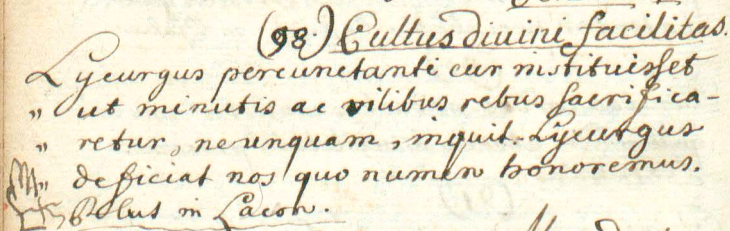 (98.) Cultus divini facilitas.
Lycurgus percunctanti cur instituisset
„ ut minutis ac vilibus rebus sacrifica-
„ retur, ne unquam, inquit Lycurgus
„ deficiat nos quo numen honoremus.
Plut in Lacon.